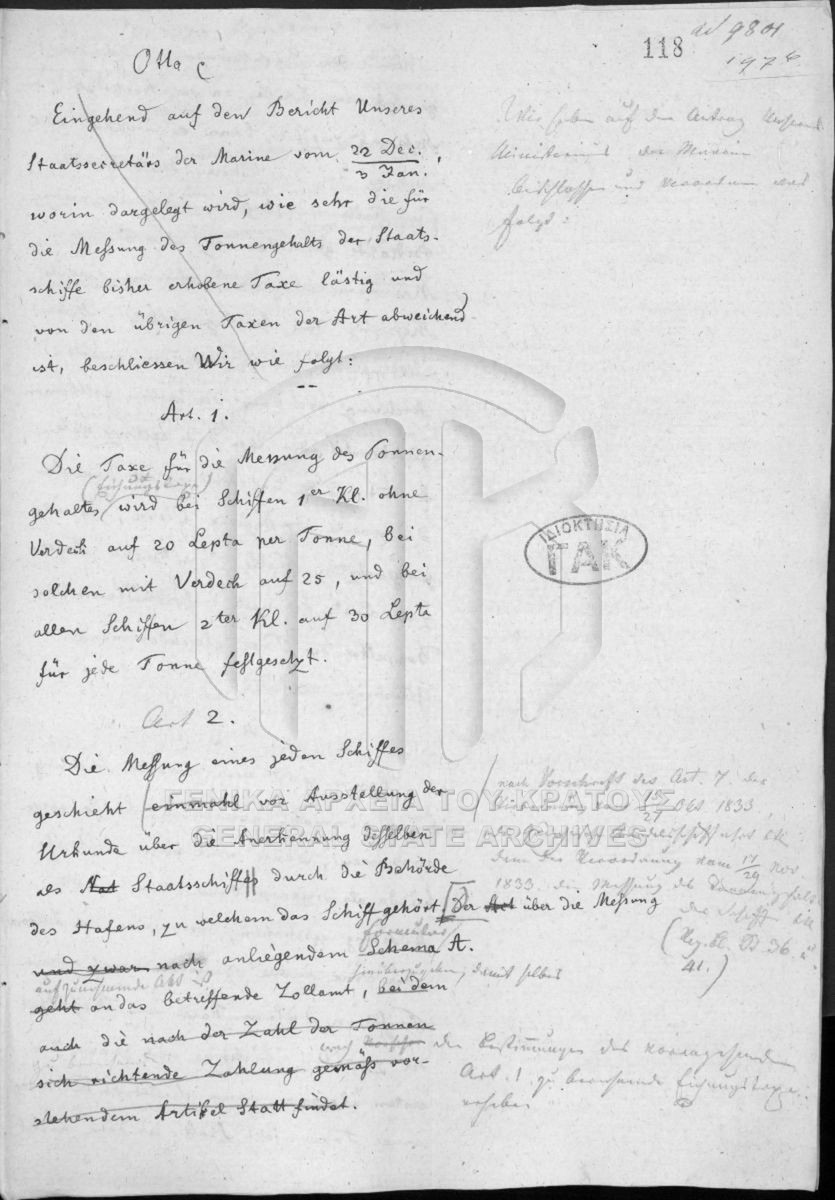 118
ad 9801
197
Otto
Eingehend auf den Bericht Unseres
Staatssecretärs der Marine vom 22 Dec. / 3 Jan.,
worin dargelegt wird, wie sehr die für
die Messung des Tonnengehalts der Staats-
schiffe bisher erhobene Taxe lästig und
von den übrigen Taxen der Art abweichend
ist, beschliessen Wir wie folgt:
Wir haben auf den Antrag Unseres
Ministeriums der Marine
beschlossen und verordnen was
folgt:
Art. 1.
Die Taxe für die Messung des Tonnen-
(Eichungstaxe)
gehaltes wird bei Schiffen 1er Kl. ohne
Verdeck auf 20 Lepta per Tonne, bei
solchen mit Verdeck auf 25, und bei
allen Schiffen 2ter Kl. auf 30 Lepta
für jede Tonne festgesetzt.
ΙΔΙΟΚΤΗΣΙΑ
ΓΑΚ
Art 2.
Die Messung eines jeden Schiffes
geschieht einmahl vor Ausstellung der
Urkunde über die Anerkennung desselben
als Nat Staatsschiffes durch die Behörde
des Hafens, zu welchem das Schiff gehört. Der Act über die Messung
und zwar nach anliegendem Schema A.
Formular
aufzunehmende Akt ist
hinüberzugeben, damit selbes
geht an das betreffende Zollamt, bei dem
auch die nach der Zahl der Tonnen
sich richtende Zahlung gemäss vor-
stehendem Artikel Statt findet.
nach Vorschrift des Art. 7 der
Oct. 1833,
dem der Verordnung vom 17/29 Nov.
1833 die Messung des
der Schiffe
(Reg. Bl. 36 u.
41.)
nach den Bestimmungen des vorangehenden
Art. 1 zu berechnende Eichungstaxe
erhebe.
ΓΕΝΙΚΑ ΑΡΧΕΙΑ ΤΟΥ ΚΡΑΤΟΥΣ
GENERAL STATE ARCHIVES